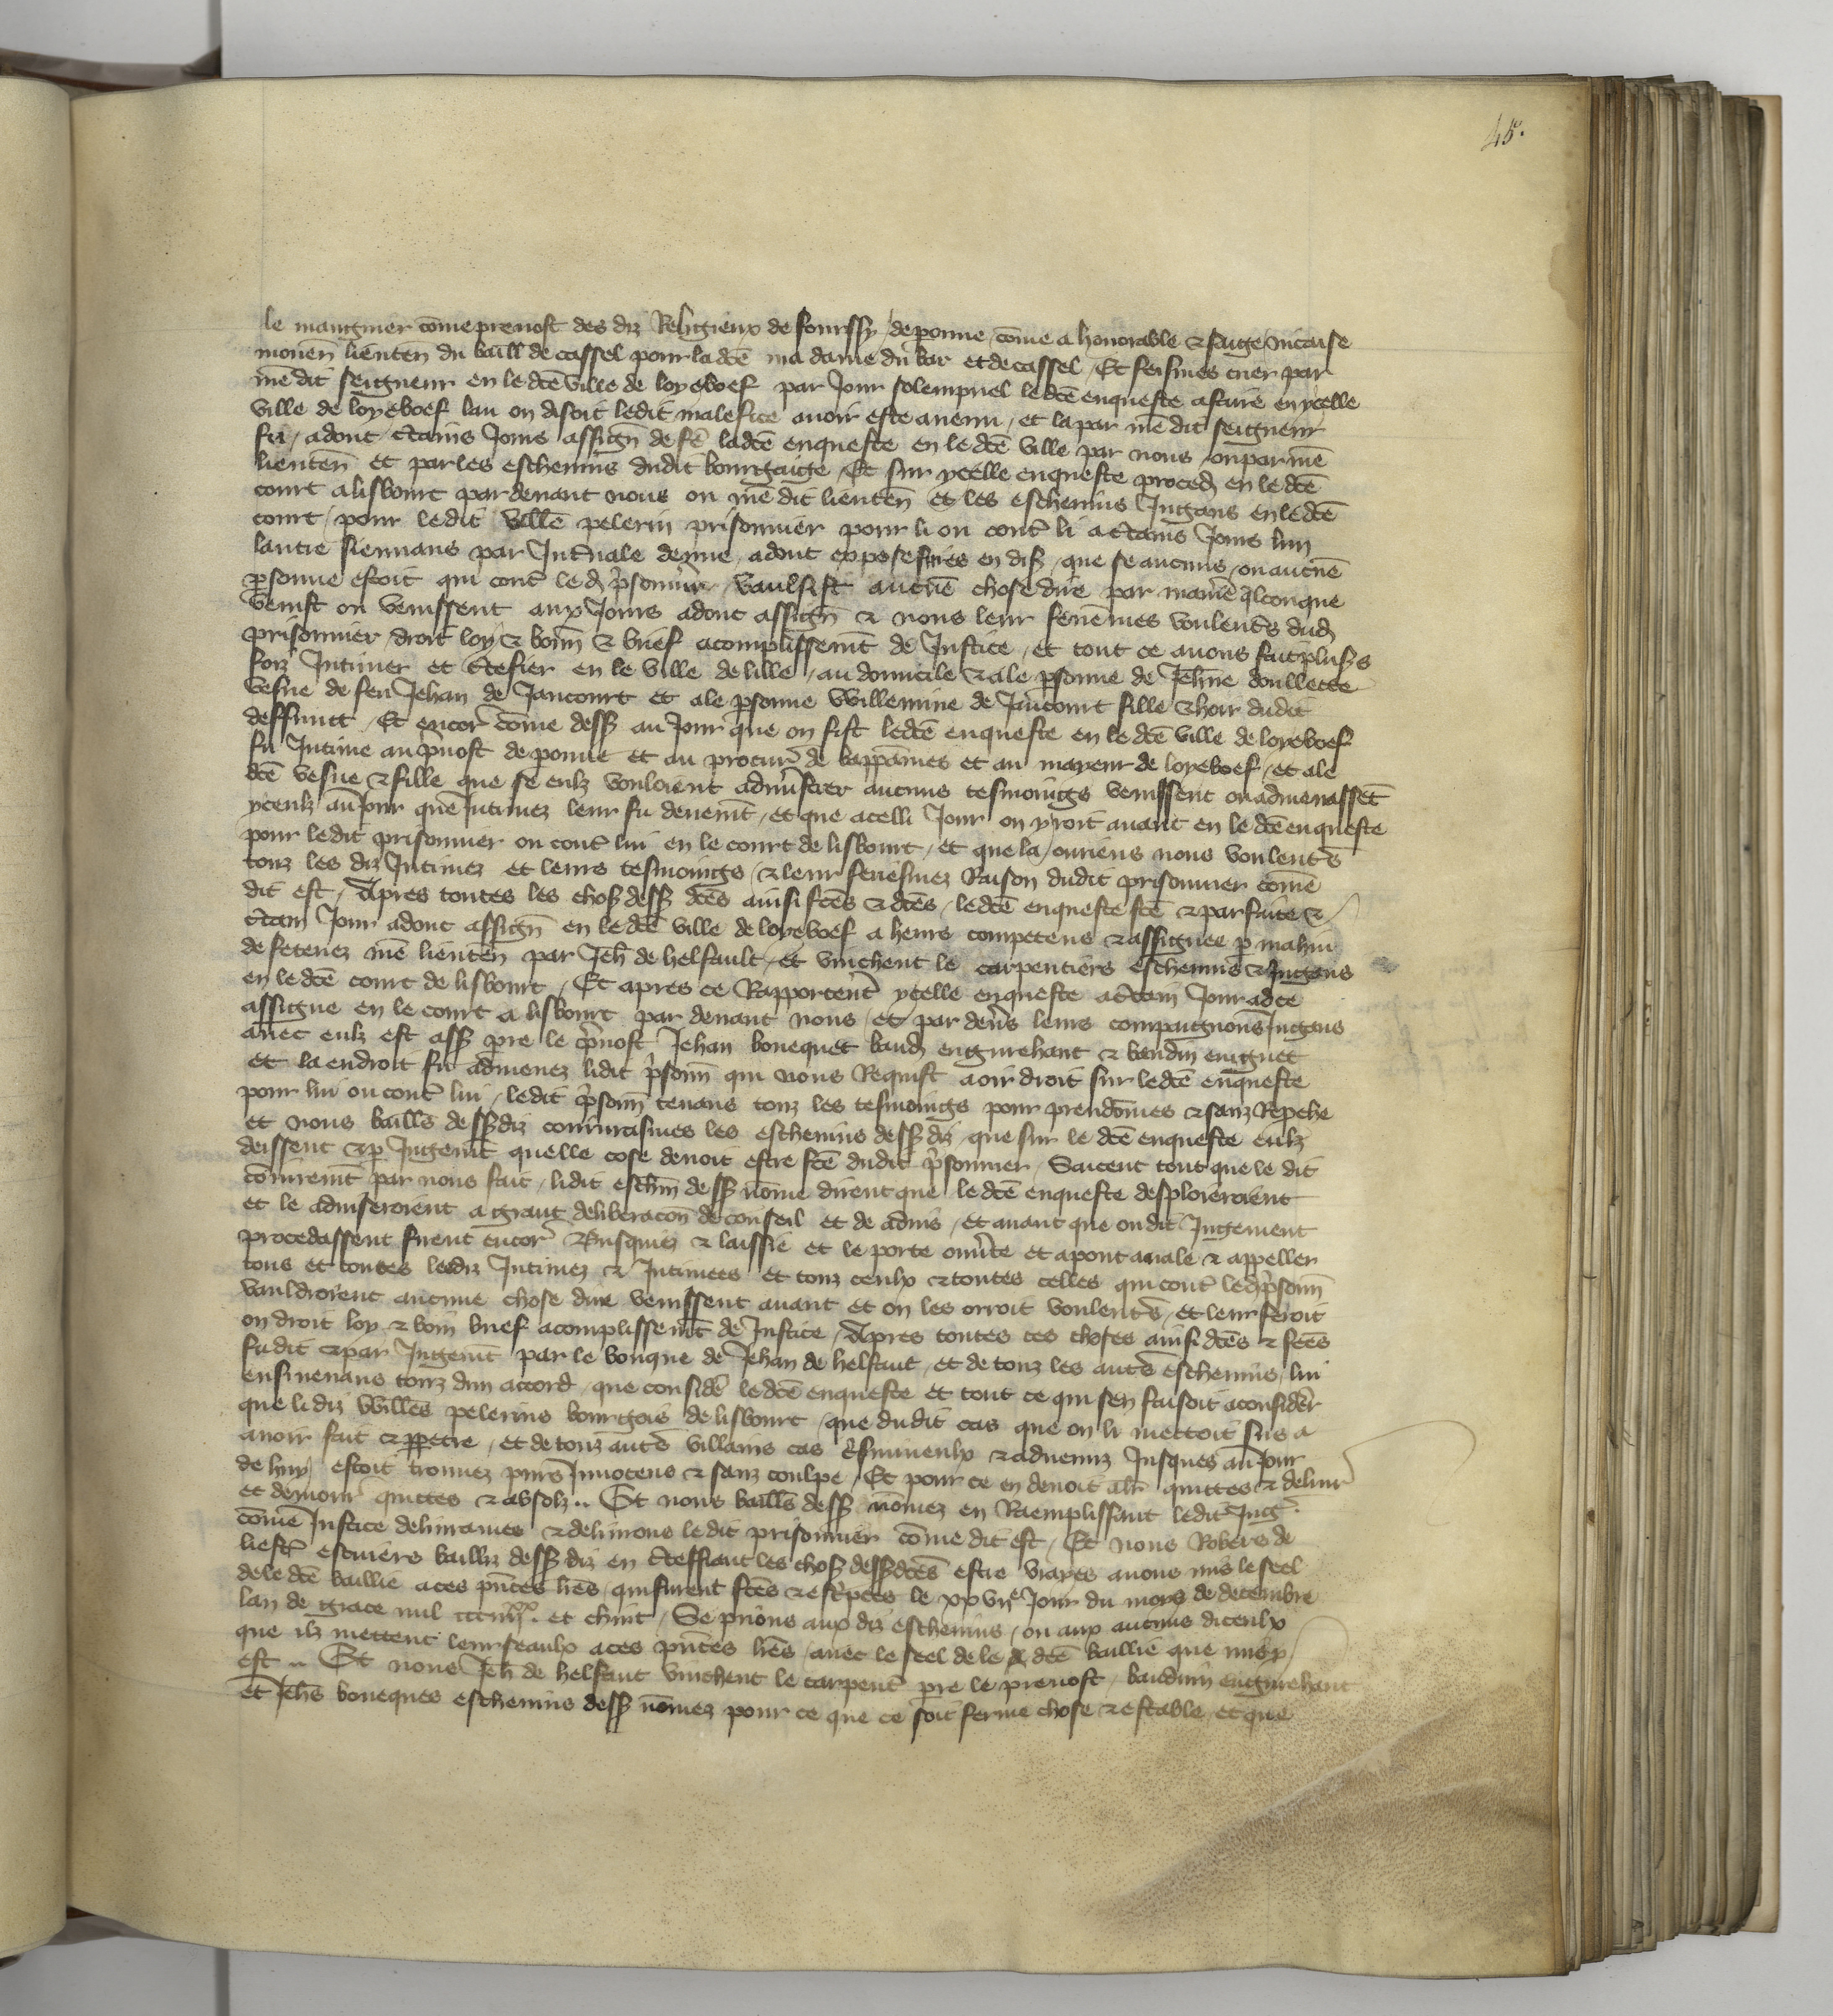 45.
le mangnier cōme prevost des diz Religieux de fourssy / de ponne, cōme a honorable & saige vincaise
mouen̄ lieuten̄ du baill de cassel pour la dcē ma dame du bar et de cassel / Et feismes crier par
mē dit seigneur en le dcē ville de loyeboef par Jour solempnel le dcē enqueste a faire en ycelle
ville de loyeboef lau on disoit ledit malefice avoir este avenu / et la par mē dit seigneur
fu / adont c̄tains Jours assign̄ de fē ladcē enqueste en le dcē ville par nous / ou par mē
lieuten̄ et par les eschevins dudit bourgaige / Et sur ycelle enqueste proced en le dcē
court a lisbourt par devant nous ou mē dit lieuten̄ et les eschevins Jugans en le dcē
court / pour ledit Willē pelerin prisonnier pour li ou cont̄ li a c̄tains Jours lun
lautre sievvans par Int̄vale deyme / adont exposesmes en dis̄ / que se aucuns / ou aucūe
p̄sonne estoit qui cont̄ led p̄sonnier / vaulsist aucūe chose dire par manīe q̄lconque
venist ou venissent aux Jours adont assign̄ & nous leur ferīemes voulent̄s dud
prisonnier / droit loy & boin & brief acomplissemt̄ de Justice / et tout ce avons fait plus̄s
foiz Intimer et c̄tefier en le ville de lille / au domicile & a le p̄sonne de Jehn̄e doullette
vesve de feu Jehan de Jancourt et a le p̄sonne Willemine de Jancourt fille & hoir dudit
deffunct / Et encor̄ cōme dess̄ au Jour que on fist le dcē enqueste en le dcē ville de loyeboef
fu Intime au p̄vost de ponne et au procur̄ de bappāmes et au mayeur de loyeboef / et a le
dcē vesve & fille que se eulz vouloient admīstrer aucuns tesmoings venissent ou admenassēt
yceulz au Jour que Intimez leur fu devemt̄ / et que a celli Jour on yroit avant en le dcē enqueste
pour ledit prisonnier ou cont̄ lui en le court de lisbourt / et que la / oiriens nous voulent̄s
touz les diz Intimez et leurs tesmoings / & leur feriesmez Raison dudit prisonnier cōme
dit est / Apres toutes les chos̄ dess̄ dcēs ainsi fcēs & dcēs / le dcē enqueste fcē & parfaite &
c̄tain Jour adont assign̄ en le dcē ville de loyeboef a heure competens & assignee p̄ mahiu
de fetenez mē lieuten̄ par Jeh̄ de helfault / et vinchent le carpentiers eschevins & Jugans
en le dcē court de lisbourt / Et apres ce Rapportent̄ ycelle enqueste a c̄tain Jour ad ce
assigne en le court a lisbourt par devant nous / et par dev̄s leurs compaignons Jugans
avec eulz est ass̄ pre le p̄vost Jehan bouequet baud enguehant & baudin enguet
et la endroit fu admenez lidit p̄sonn̄ qui nous Requist a oir droit sur le dcē enqueste
pour lui ou cont̄ lui / ledit p̄sonn̄ tenans touz les tesmoings pour preudōmes & sanz Repche
et nous baillīs dess̄diz conjurasmes les eschevins dess̄ diz / que sur le dcē enqueste eulz
deissent & p̄ Jugemt̄ quelle cose devoit estre fcē dudit p̄sonnier / Saicent tout que le dit
conjuremt̄ par nous fait / lidit eschn̄ dess̄ nōme dirent que le dcē enqueste desploieroient
et le adviseroient a grant deliberacōn de conseil et de advis / et avant que ou dit Jugement
procedassent furent encor̄ Brusquiez & laissie et le porte ouv̄te et a pont avale & appeller
tous et toutes lesdiz Intimez & Intimees et touz ceulx & toutes celles qui cont̄ led p̄sonn̄
vauldroient aucune chose dire venissent avant et on les orroit voulent̄s / et leur feroit
on droit loy & boin brief acomplissemt̄ de Justice / Apres toutes ces choses ainsi dcēs & fcēs
fu dit & par Jugemt̄ par le bouque de Jehan de helfaut / et de touz les aut̄s eschevins / lui
ensuievans touz dun accord / que consid̄e le dcē enqueste et tout ce qui sen faisoit a consid̄er
que li diz Willēs pelerins bourgois de lisbourt / que dudit cas que on li mettoit sus a
avoir fait & ppetre / et de touz aut̄s villains cas c̄sinnenlx & advenuz Jusques au Jour
de huy / estoit trouvez purs Innocens & sanz coulpe / Et pour ce en devoit aler quittes & delivr̄
et demour̄ quittes & absolz .. Et nous baillīs dess̄ nōmez en Raemplissant ledit Juḡ.
cōme Justice delivrames & delivrons ledit prisonnier cōme dit est / Et nous Robers de
liestr̄ escuiers bailliz dess̄ diz en c̄teffiant les chos̄ dess̄dcēs estre vrayes avons mis le seel
de le dcē baillie a ces pn̄tes līes / qui furent fcēs & esc̄ptes le xxviiᵉ Jour du mois de decembre
lan de grace mil ccciiijˣˣ. et chinc / Se prions aux diz eschevins / ou aux aucuns diceulx
que ilz mettent leur seaulx a ces pn̄tes līes / avec le seel de le dcē baillie que mis y
est .. Et nous Jeh̄ de helfaut vinchent le carpent̄ pre le prevost / baudwin enguehant
et Jehs̄ boueques eschevins dess̄ nōmez pour ce que ce soit ferme chose & estable / et que